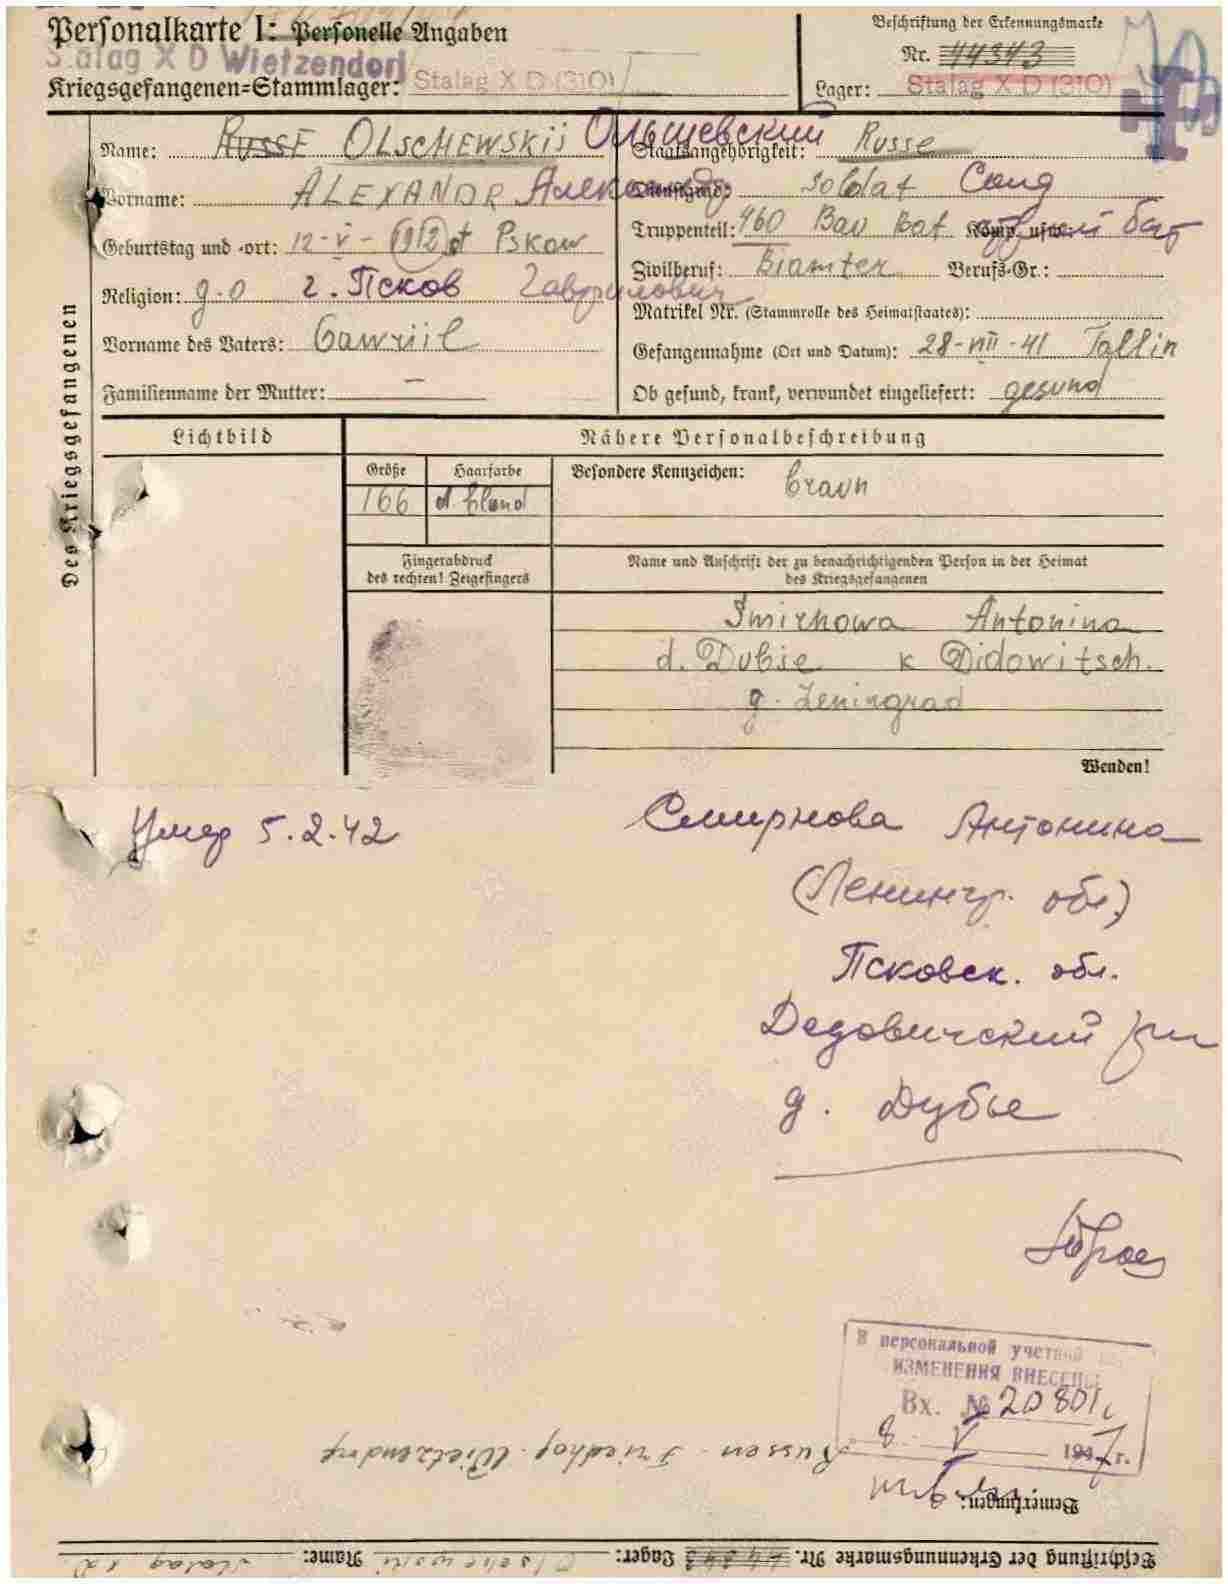 Personalkarte I: Personelle Angaben
Stalag X D Wietzendorf
Kriegsgefangenen=Stammlager: Stalag X D (310)
Beschriftung der Erkennungsmarke
Nr. 44343
Lager: Stalag X D (310)
Des Kriegsgefangenen
Name: Russe OLSCHEWSKIJ Ольшевский
Vorname: ALEXANDR Александр
Geburtstag und -ort: 12-V-1912 Pskow
Religion: g.o г. Псков Гаврилович
Vorname des Vaters: Gawriil
Familienname der Mutter: —
Staatsangehörigkeit: Russe
Dienstgrad: Soldat Солд
Truppenteil: 460 Bau Bat Komp. usw.: бат
Zivilberuf: Beamter Berufs-Gr.:
Matrikel Nr. (Stammrolle des Heimatstaates):
Gefangennahme (Ort und Datum): 28-VIII-41 Tallin
Ob gesund, krank, verwundet eingeliefert: gesund
Lichtbild
Nähere Personalbeschreibung
Größe Haarfarbe
166 d. blond
Besondere Kennzeichen: braun
Fingerabdruck
des rechten! Zeigefingers
Name und Anschrift der zu benachrichtigenden Person in der Heimat
des Kriegsgefangenen
Smirnowa Antonina
d. Dubje k Didowitsch.
g. Leningrad
Wenden!
Умер 5.2.42
Смирнова Антонина
(Ленингр. обл.)
Псковск. обл.
Дедовичский
д. Дубье
В персональной учетной
ИЗМЕНЕНИЯ ВНЕСЕНЫ
Вх. № 20801
8 V 1947 г.
Russen-Friedhof Wietzendorf
Bemerkungen:
Beschriftung der Erkennungsmarke Nr. 44343 Lager: Name: